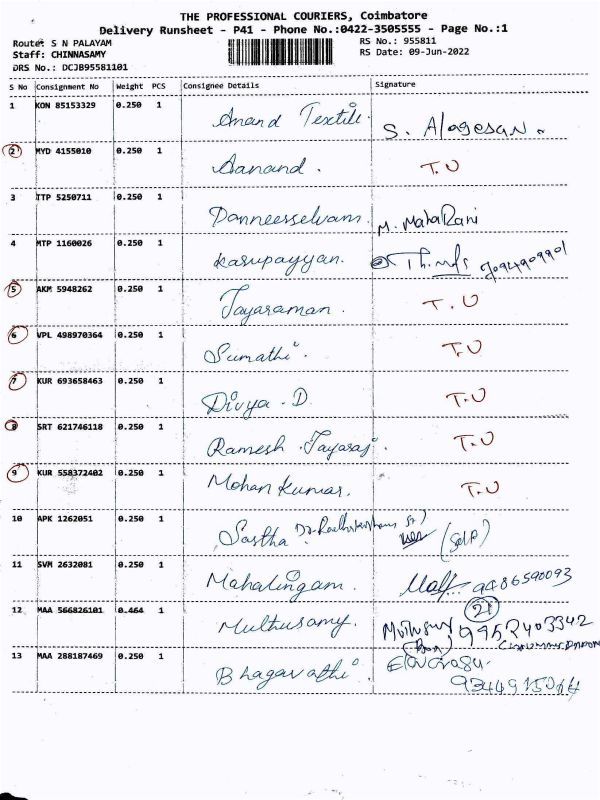 THE PROFESSIONAL COURIERS, Coimbatore
Delivery Runsheet - P41 - Phone No.:0422-3505555 - Page No.:1
Route: S N PALAYAM RS No.: 955811
Staff: CHINNASAMY RS Date: 09-Jun-2022
DRS No.: DCJB95581101
S No Consignment No Weight PCS Consignee Details Signature
1 KON 85153329 0.250 1 Anand Textile. S. Alagesan
2 MYD 4155010 0.250 1 Aanand. T.U
3 TTP 5250711 0.250 1 Panneesselvam. M. MahaRani
4 MTP 1160026 0.250 1 Karupayyan. 9094909901
5 AKM 5948262 0.250 1 Jayaraman. T.U
6 VPL 498970364 0.250 1 Sumathi. T.U
7 KUR 693658463 0.250 1 Divya.D T.U
8 SRT 621746118 0.250 1 Ramesh Jayaraj. T.U
9 KUR 558372402 0.250 1 Mohan Kumar. T.U
10 APK 1262051 0.250 1 Sastha
11 SVM 2632081 0.250 1 Mahalingam. 9486590093
12 MAA 566826101 0.464 1 Muthusamy. 21 9952403342
13 MAA 288187469 0.250 1 Bhagavathi.